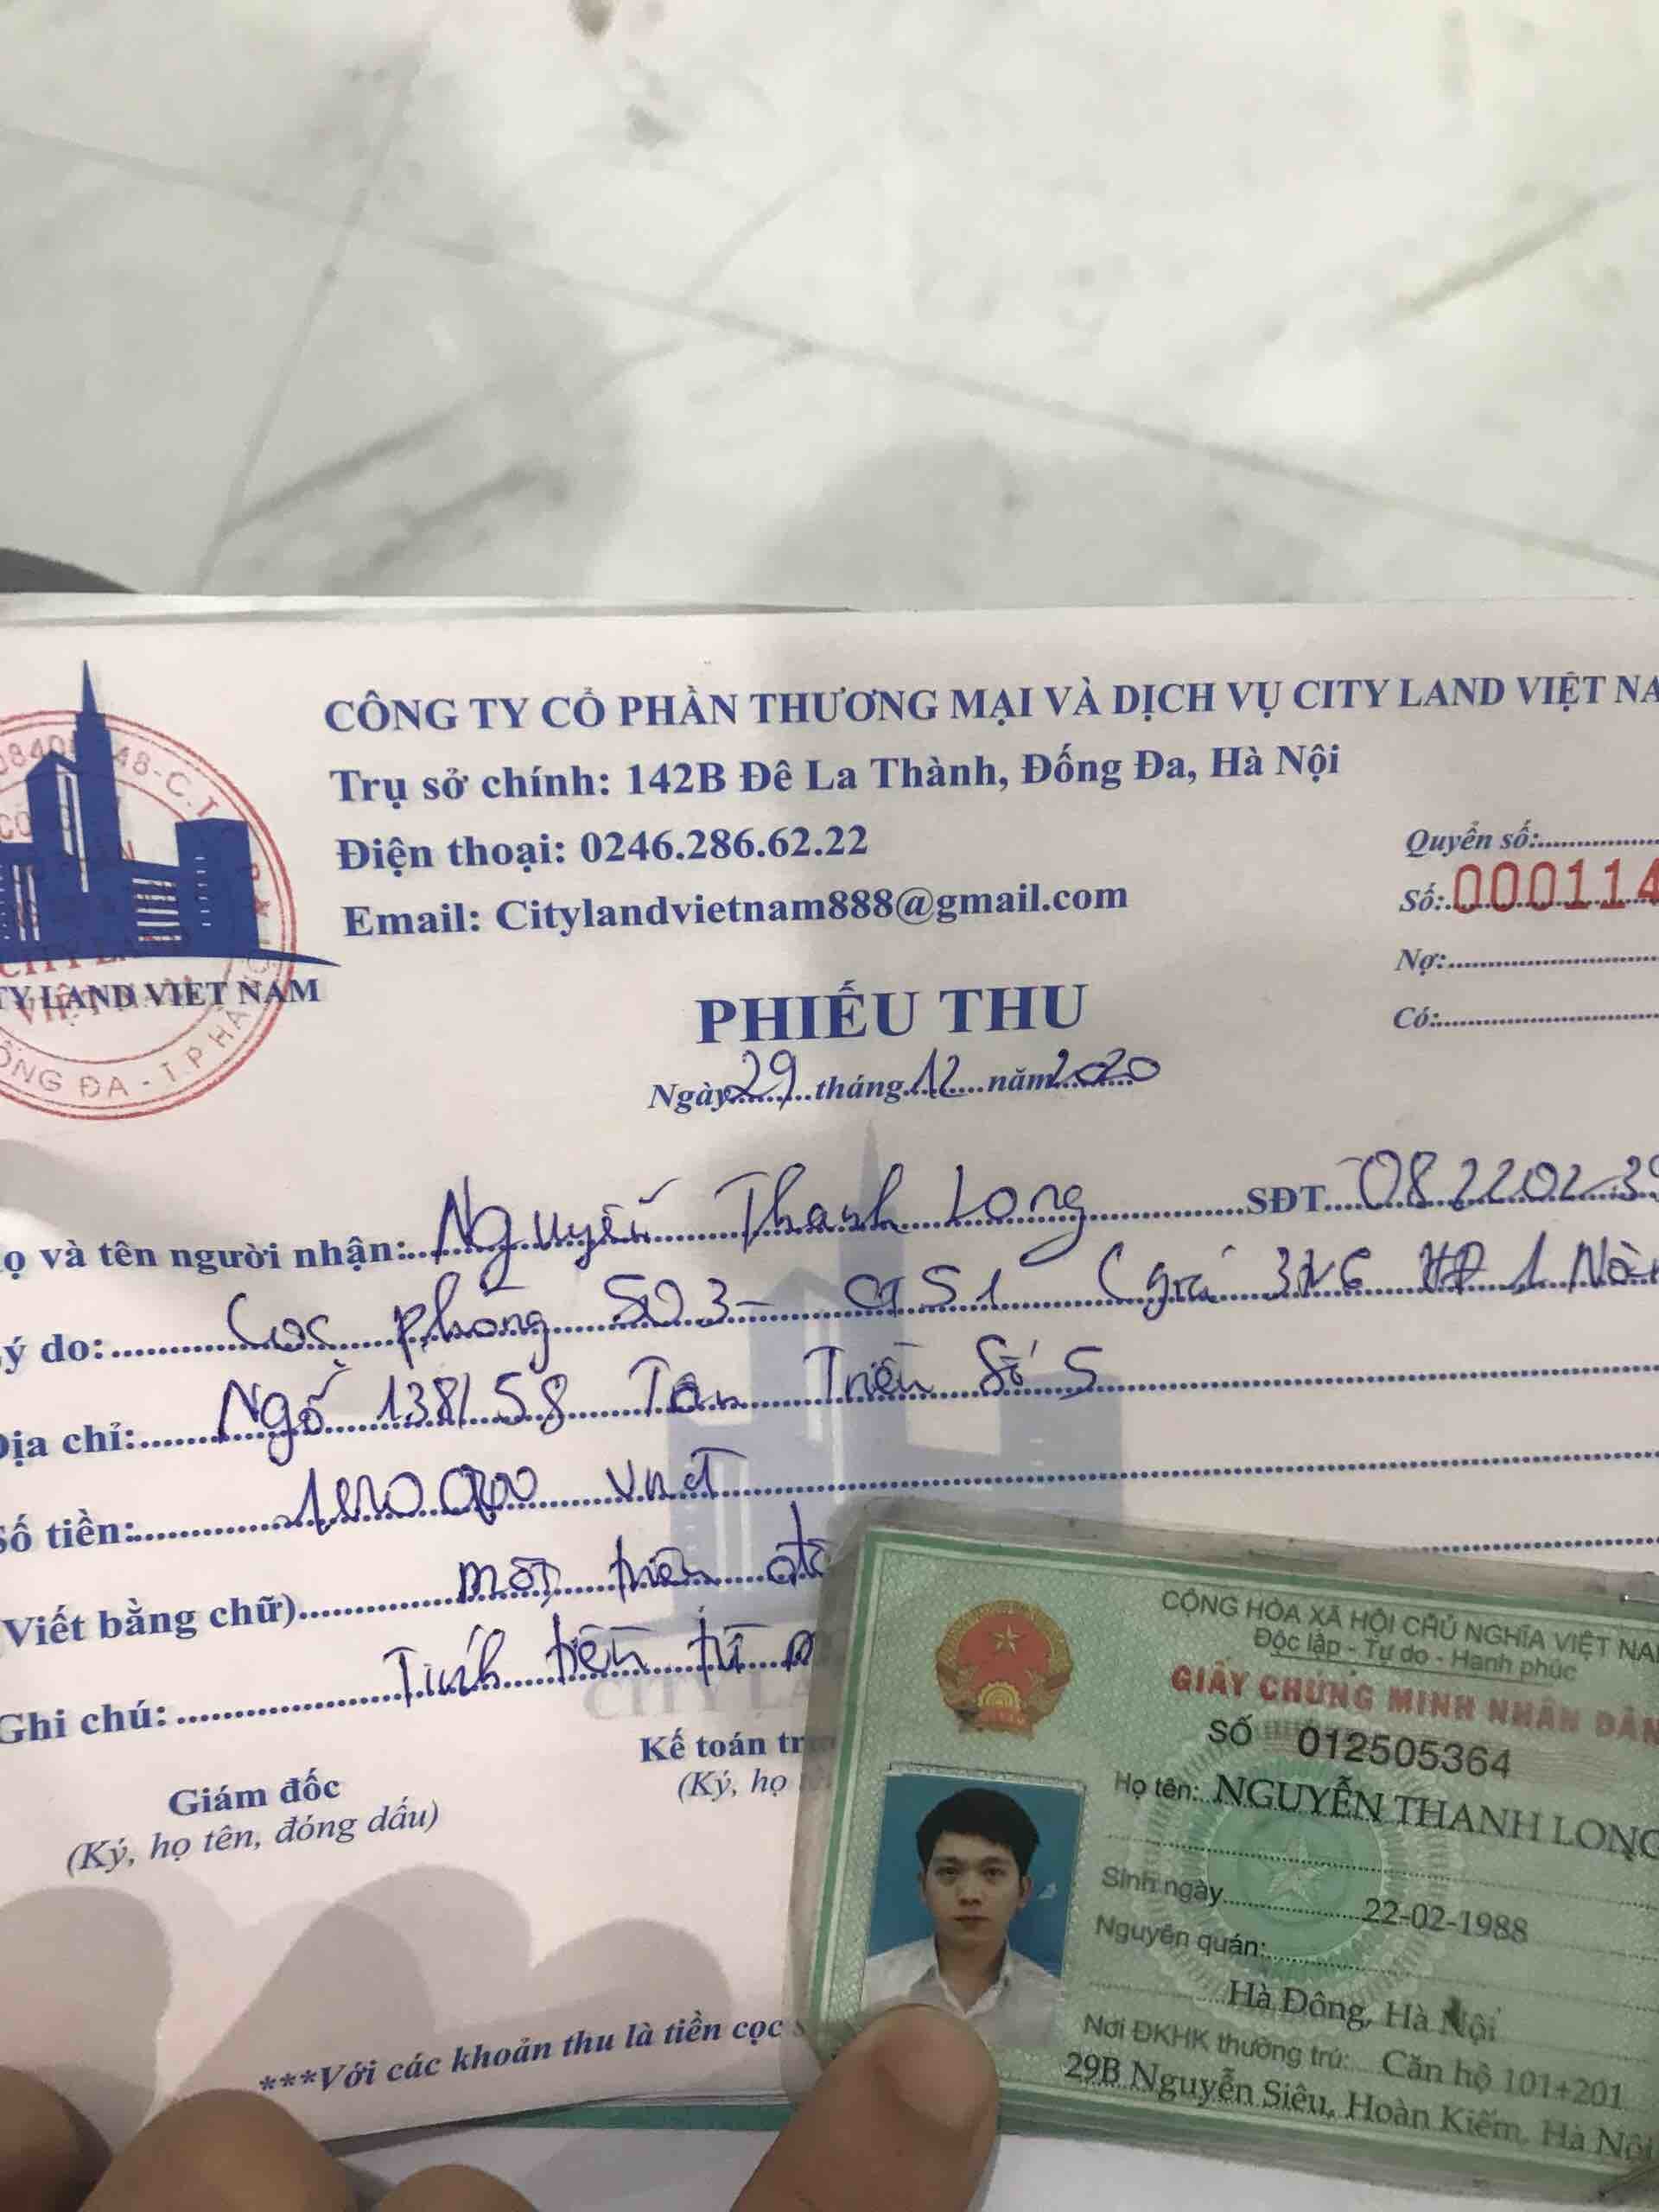 CÔNG TY CỔ PHẦN THƯƠNG MẠI VÀ DỊCH VỤ CITY LAND VIỆT NA
Trụ sở chính: 142B Đê La Thành, Đống Đa, Hà Nội
Điện thoại: 0246.286.62.22
Email: Citylandvietnam888@gmail.com
Quyển số:
Số: 000114
Nợ:
Có:
TY LAND VIỆT NAM
ỐNG ĐA - T.P HÀ
PHIẾU THU
Ngày 29 tháng 12 năm 2020
ọ và tên người nhận: Nguyễn Thanh Long SĐT 08 2202
ý do: Cọc phòng 503 - (giá 3tr6 HĐ 1 Năm
Địa chỉ: Ngõ 138/58 Tân Triều Số 5
Số tiền: vnđ
(Viết bằng chữ) một triệu
Ghi chú: Tính tiền từ
Giám đốc
(Ký, họ tên, đóng dấu)
Kế toán tr
(Ký, họ
***Với các khoản thu là tiền cọc s
CỘNG HÒA XÃ HỘI CHỦ NGHĨA VIỆT NAM
Độc lập - Tự do - Hạnh phúc
GIẤY CHỨNG MINH NHÂN DÂN
SỐ 012505364
Họ tên: NGUYỄN THANH LONG
Sinh ngày 22-02-1988
Nguyên quán:
Hà Đông, Hà Nội
Nơi ĐKHK thường trú: Căn hộ 101+201
29B Nguyễn Siêu, Hoàn Kiếm, Hà Nội